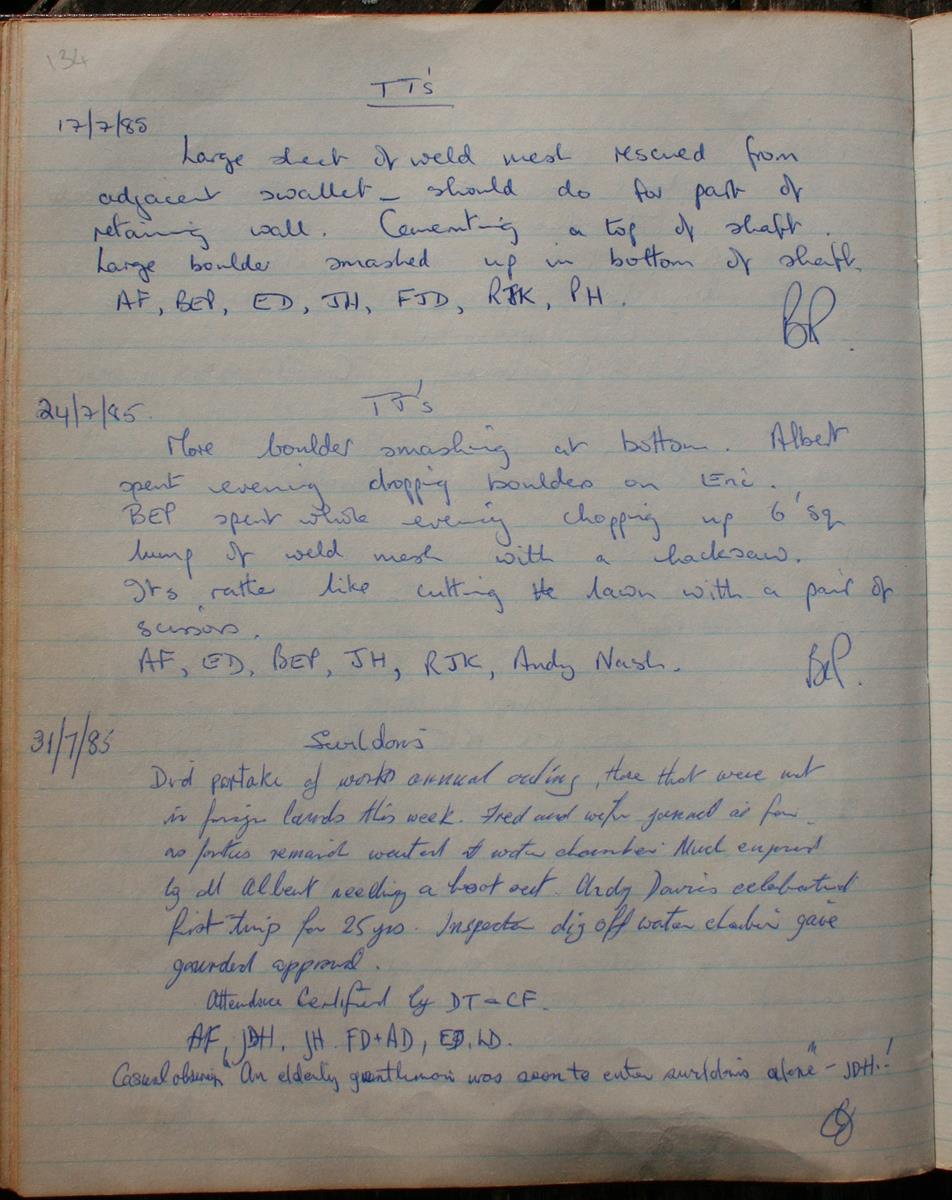 134
TT's
17/7/85
Large sheet of weld mesh rescued from
adjacent swallet - should do for part of
retaining wall. Cementing a top of shaft.
Large boulder smashed up in bottom of shaft.
AF, BEP, ED, JH, FJD, RJK, PH.
BP.
24/7/85. TT's
More boulder smashing at bottom. Albert
spent evening dropping boulders on Eric.
BEP spent whole evening chopping up 6' sq
lump of weld mesh with a hacksaw.
Its rather like cutting the lawn with a pair of
scissors.
AF, ED, BEP, JH, RJK, Andy Nash.
BeP.
31/7/85 Swildons
Did partake of works annual outing, those that were not
in foreign lands this week. Fred and wife joined as far
as remained water chamber. Much enjoyed
by all Albert needing a boot out. Andy Davis celebrated
first trip for 25 yrs. Inspected dig off water chamber gave
guarded approval.
Attendance Certified by DT = CF.
AF, JDH, JH. FD+AD, ED, LD.
Casual "An elderly gentleman was seen to enter swildons alone" - JDH.!